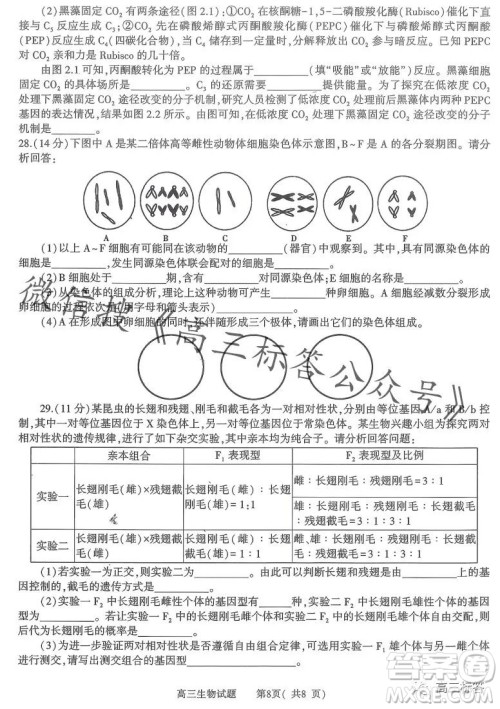 (2)黑藻固定 CO2 有两条途径(图 2.1):①CO2 在核酮糖-1,5-二磷酸羧化酶(Rubisco)催化下直
接与 C5 反应生成 C3;②CO2 先在磷酸烯醇式丙酮酸羧化酶(PEPC)催化下与磷酸烯醇式丙酮酸
(PEP)反应生成 C4(四碳化合物),当 C4 储存到一定量时,分解释放出 CO2 参与②。已知 PEPC
对 CO2 亲和力是 Rubisco 的几十倍。
由图 2.1 可知,丙酮酸转化为 PEP 的过程属于______(填“吸能”或“放能”)反应。黑藻细胞
固定 CO2 的具体场所是______。C3 的还原需要______提供能量。为了探究在低浓度 CO2
处理下黑藻固定 CO2 途径改变的分子机制,研究人员检测了低浓度 CO2 处理下黑藻体内两种 PEPC
基因的表达情况,结果如图 2.2 所示。由图可知,在低浓度 CO2 处理下黑藻固定 CO2 途径改变的分子
机制是______。
28.(14 分)下图中 A 是某二倍体高等雌性动物体细胞染色体示意图,B~F 是 A 的各分裂期图。请分
析回答:
A B C D E F
(1)以上 A~F 细胞有可能同在该动物的______(器官)中观察到。其中,具有同源染色体的细
胞是______,发生同源染色体联会配对的细胞是______。
(2)B 细胞处于______期,含有______对同源染色体;E 细胞的名称是______。
(3)从染色体的组成分析,理论上该动物可产生______种卵细胞。A 细胞经减数分裂形成
卵细胞的过程依次为(用字母和箭头表示)______。
(4)A 在形成图中卵细胞的同时,还伴随形成三个极体,请画出它们的染色体组成。
29.(11 分)某昆虫的长翅和残翅、刚毛和截毛各为一对相对性状,分别由等位基因 A/a 和 B/b 控
制,其中一对等位基因位于 X 染色体上,另一对等位基因位于常染色体。某生物兴趣小组为探究两对
相对性状的遗传规律,进行了如下杂交实验,其中亲本均为纯合子。请分析回答问题:
亲本组合 F1 表现型 F2 表现型及比例
实验一 长翅刚毛(雌)×残翅截毛(雄) 长翅刚毛(雌):长翅刚毛(雄)=1:1 雌:长翅刚毛:残翅刚毛=3:1
雄:长翅刚毛:长翅截毛:残翅刚毛:残翅截毛=3:3:1:1
实验二 长翅刚毛(雄)×残翅截毛(雌) 长翅刚毛(雌):长翅截毛(雄)=1:1 雌、雄:长翅刚毛:长翅截毛:残翅刚毛:残翅截毛=3:3:1:1
(1)若实验一为正交,则实验二为______。由此可以判断长翅和残翅是由______上的基
因控制的,截毛的遗传方式是______。
(2)实验一 F2 中长翅刚毛雌性个体的基因型有______种,实验二 F2 中长翅刚毛雄性个体的
基因型为______。若让实验一 F2 中的长翅刚毛雌性个体与长翅刚毛雄性个体自由交配,则子
代出现长翅刚毛的概率是______。
(3)为进一步验证两对相对性状符合自由组合定律,可选用实验一 F1 雄性个体与另一个体进行测
交,请写出测交组合的基因型______。
高三生物试题 第8页( 共8 页)
微信搜《高三标答公众号》
高三标答